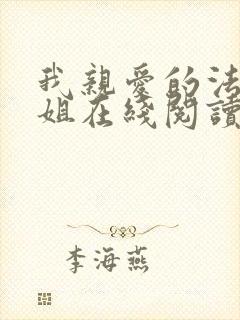 我親愛的法
姐在綫閱讀
李海燕